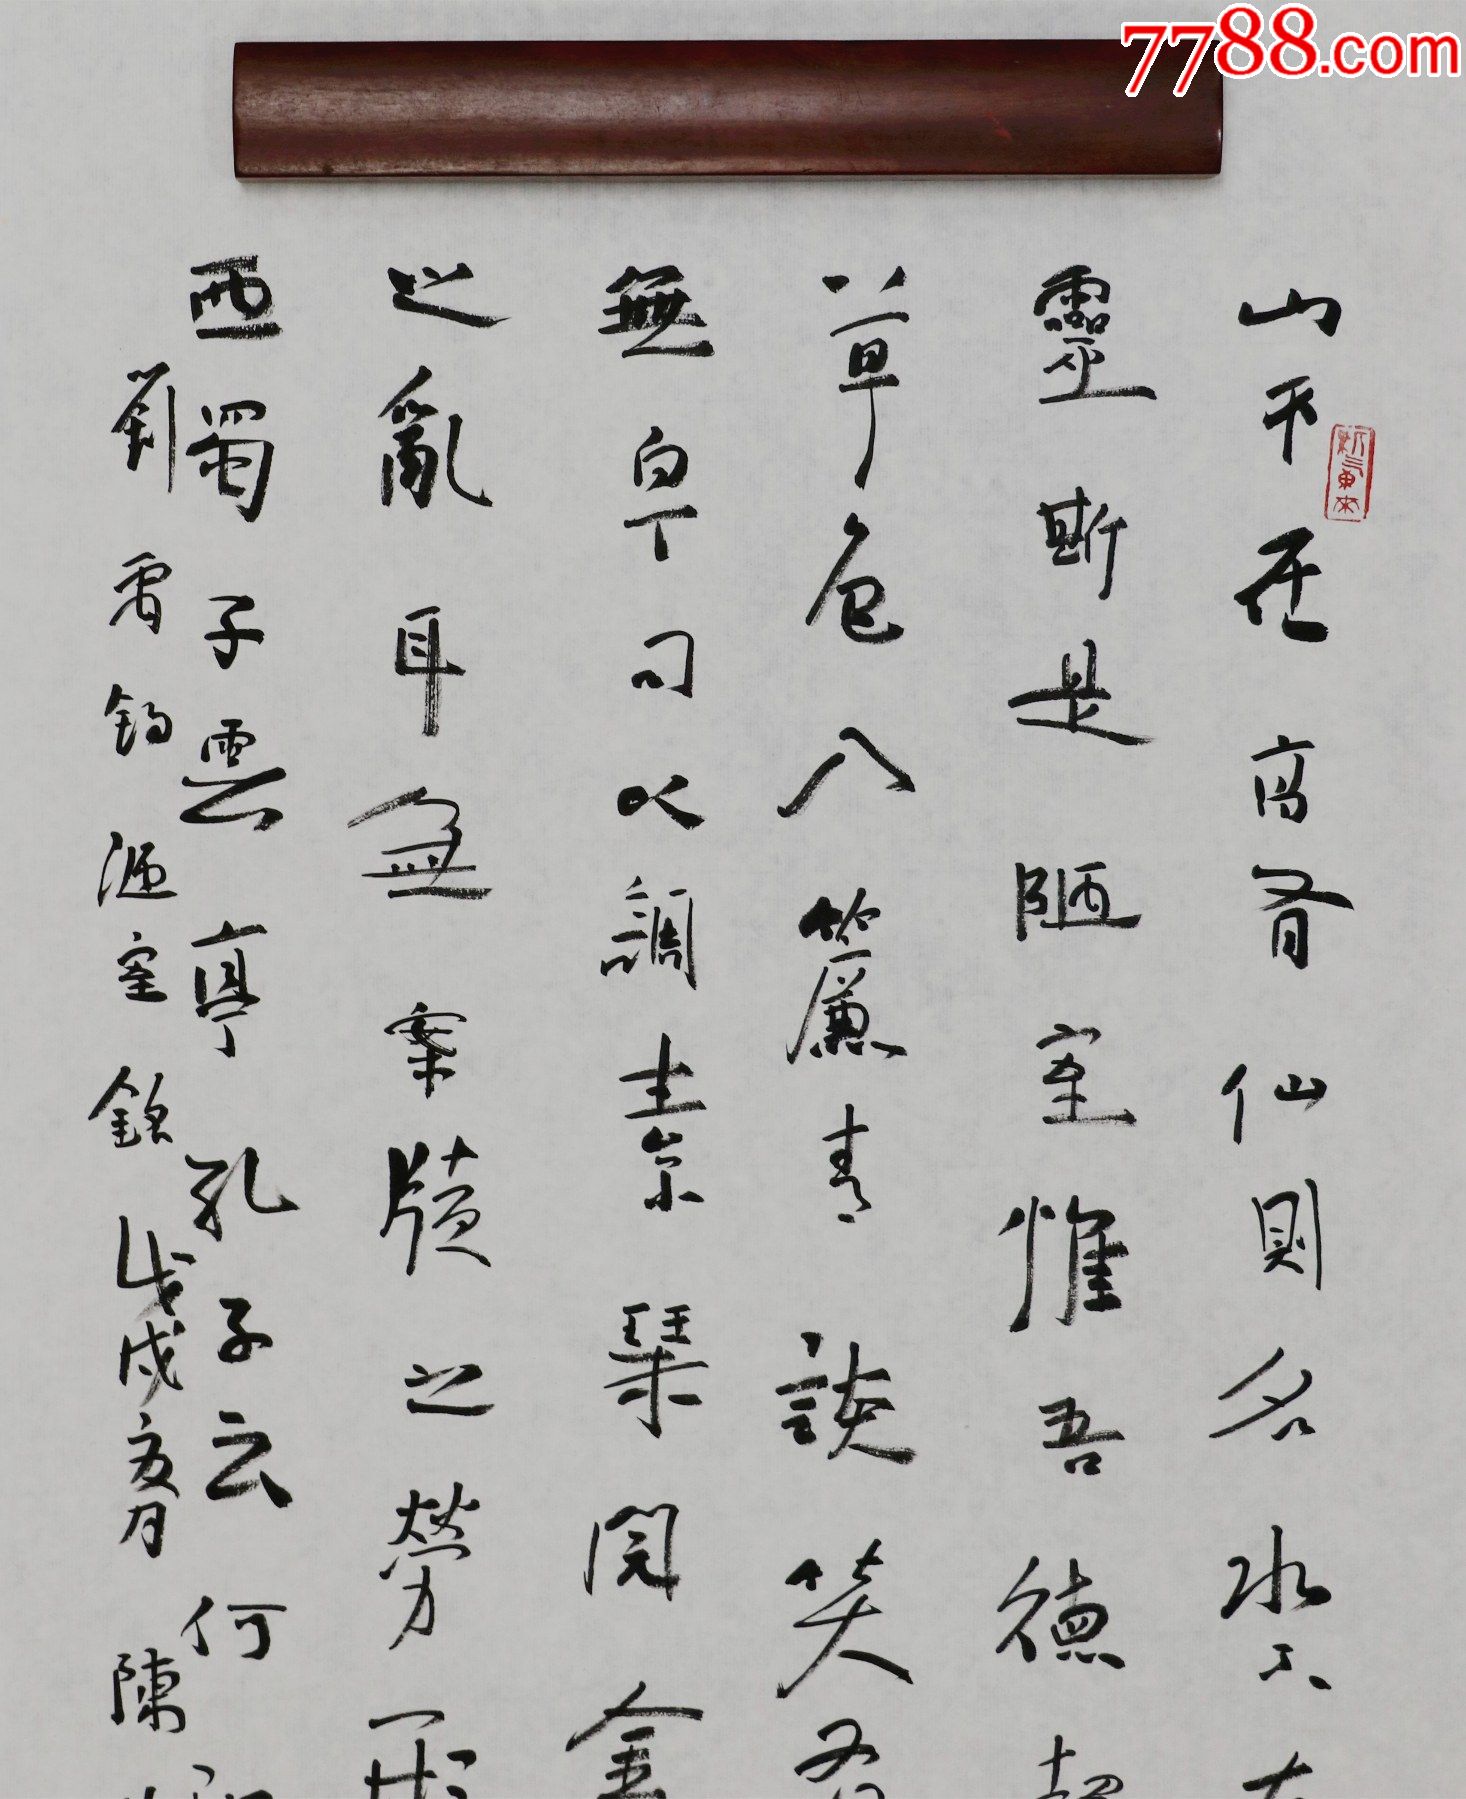 7788.com
山不在高有仙則名水不在
靈斯是陋室惟吾德馨
草色入簾青談笑有
無白丁可以調素琴閱金
之亂耳無案牘之勞形
西蜀子雲亭孔子云何陋
劉禹錫陋室銘戊戌月陳